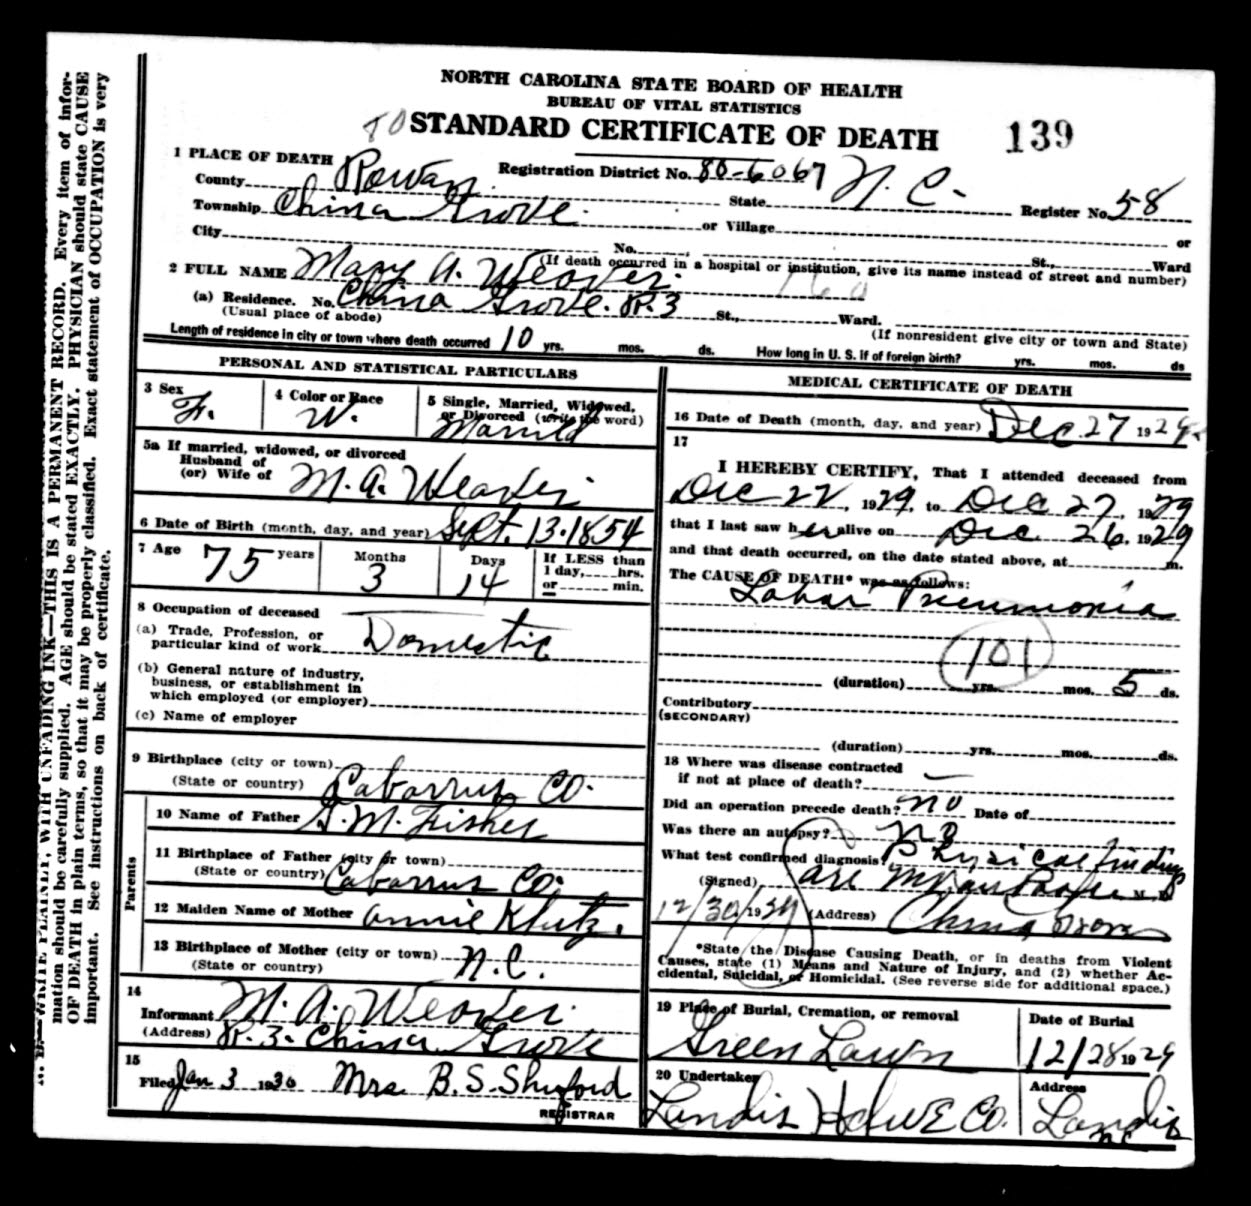 NORTH CAROLINA STATE BOARD OF HEALTH
BUREAU OF VITAL STATISTICS
80 STANDARD CERTIFICATE OF DEATH 139
1 PLACE OF DEATH
County Rowan Registration District No. 80-6067 State N. C. Register No. 58
Township China Grove. or Village or
City No. St., Ward
(If death occurred in a hospital or institution, give its name instead of street and number)
2 FULL NAME Mary A. Weaver.
(a) Residence. No. China Grove. R. 3 St., Ward.
(Usual place of abode) (If nonresident give city or town and State)
Length of residence in city or town where death occurred 10 yrs. mos. ds. How long in U. S. if of foreign birth? yrs. mos. ds
PERSONAL AND STATISTICAL PARTICULARS
3 Sex F. 4 Color or Race W. 5 Single, Married, Widowed, or Divorced (write the word) Married
5a If married, widowed, or divorced
Husband of
(or) Wife of M. A. Weaver
6 Date of Birth (month, day, and year) Sept. 13. 1854
7 Age 75 years Months 3 Days 14 If LESS than 1 day, hrs. or min.
8 Occupation of deceased
(a) Trade, Profession, or
particular kind of work Domestic
(b) General nature of industry,
business, or establishment in
which employed (or employer)
(c) Name of employer
9 Birthplace (city or town)
(State or country) Cabarrus Co.
Parents
10 Name of Father G. M. Fisher
11 Birthplace of Father (city or town)
(State or country) Cabarrus Co.
12 Maiden Name of Mother Annie Klutz.
13 Birthplace of Mother (city or town)
(State or country) N. C.
14
Informant M. A. Weaver.
(Address) R. 3. China Grove
15
Filed Jan 3 1930 Mrs. B. S. Shuford
REGISTRAR
MEDICAL CERTIFICATE OF DEATH
16 Date of Death (month, day, and year) Dec. 27 1929.
17
I HEREBY CERTIFY, That I attended deceased from
Dec 22, 1929. to Dec 27, 1929
that I last saw her alive on Dec. 26, 1929
and that death occurred, on the date stated above, at m.
The CAUSE OF DEATH* was as follows:
Lobar Pneumonia
101
(duration) yrs. mos. 5 ds.
Contributory
(SECONDARY)
(duration) yrs. mos. ds.
18 Where was disease contracted
if not at place of death? —
Did an operation precede death? no Date of
Was there an autopsy? no
What test confirmed diagnosis? Physical findings
(Signed) M. D.
12/30/1929 (Address) China Grove
*State the Disease Causing Death, or in deaths from Violent
Causes, state (1) Means and Nature of Injury, and (2) whether Ac-
cidental, Suicidal, or Homicidal. (See reverse side for additional space.)
19 Place of Burial, Cremation, or removal Date of Burial
Green Lawn 12/28 1929
20 Undertaker Address
Landis Hdwe Co. Landis NC
N. B.—WRITE PLAINLY, WITH UNFADING INK—THIS IS A PERMANENT RECORD. Every item of infor-
mation should be carefully supplied. AGE should be stated EXACTLY. PHYSICIAN should state CAUSE
OF DEATH in plain terms, so that it may be properly classified. Exact statement of OCCUPATION is very
important. See instructions on back of certificate.